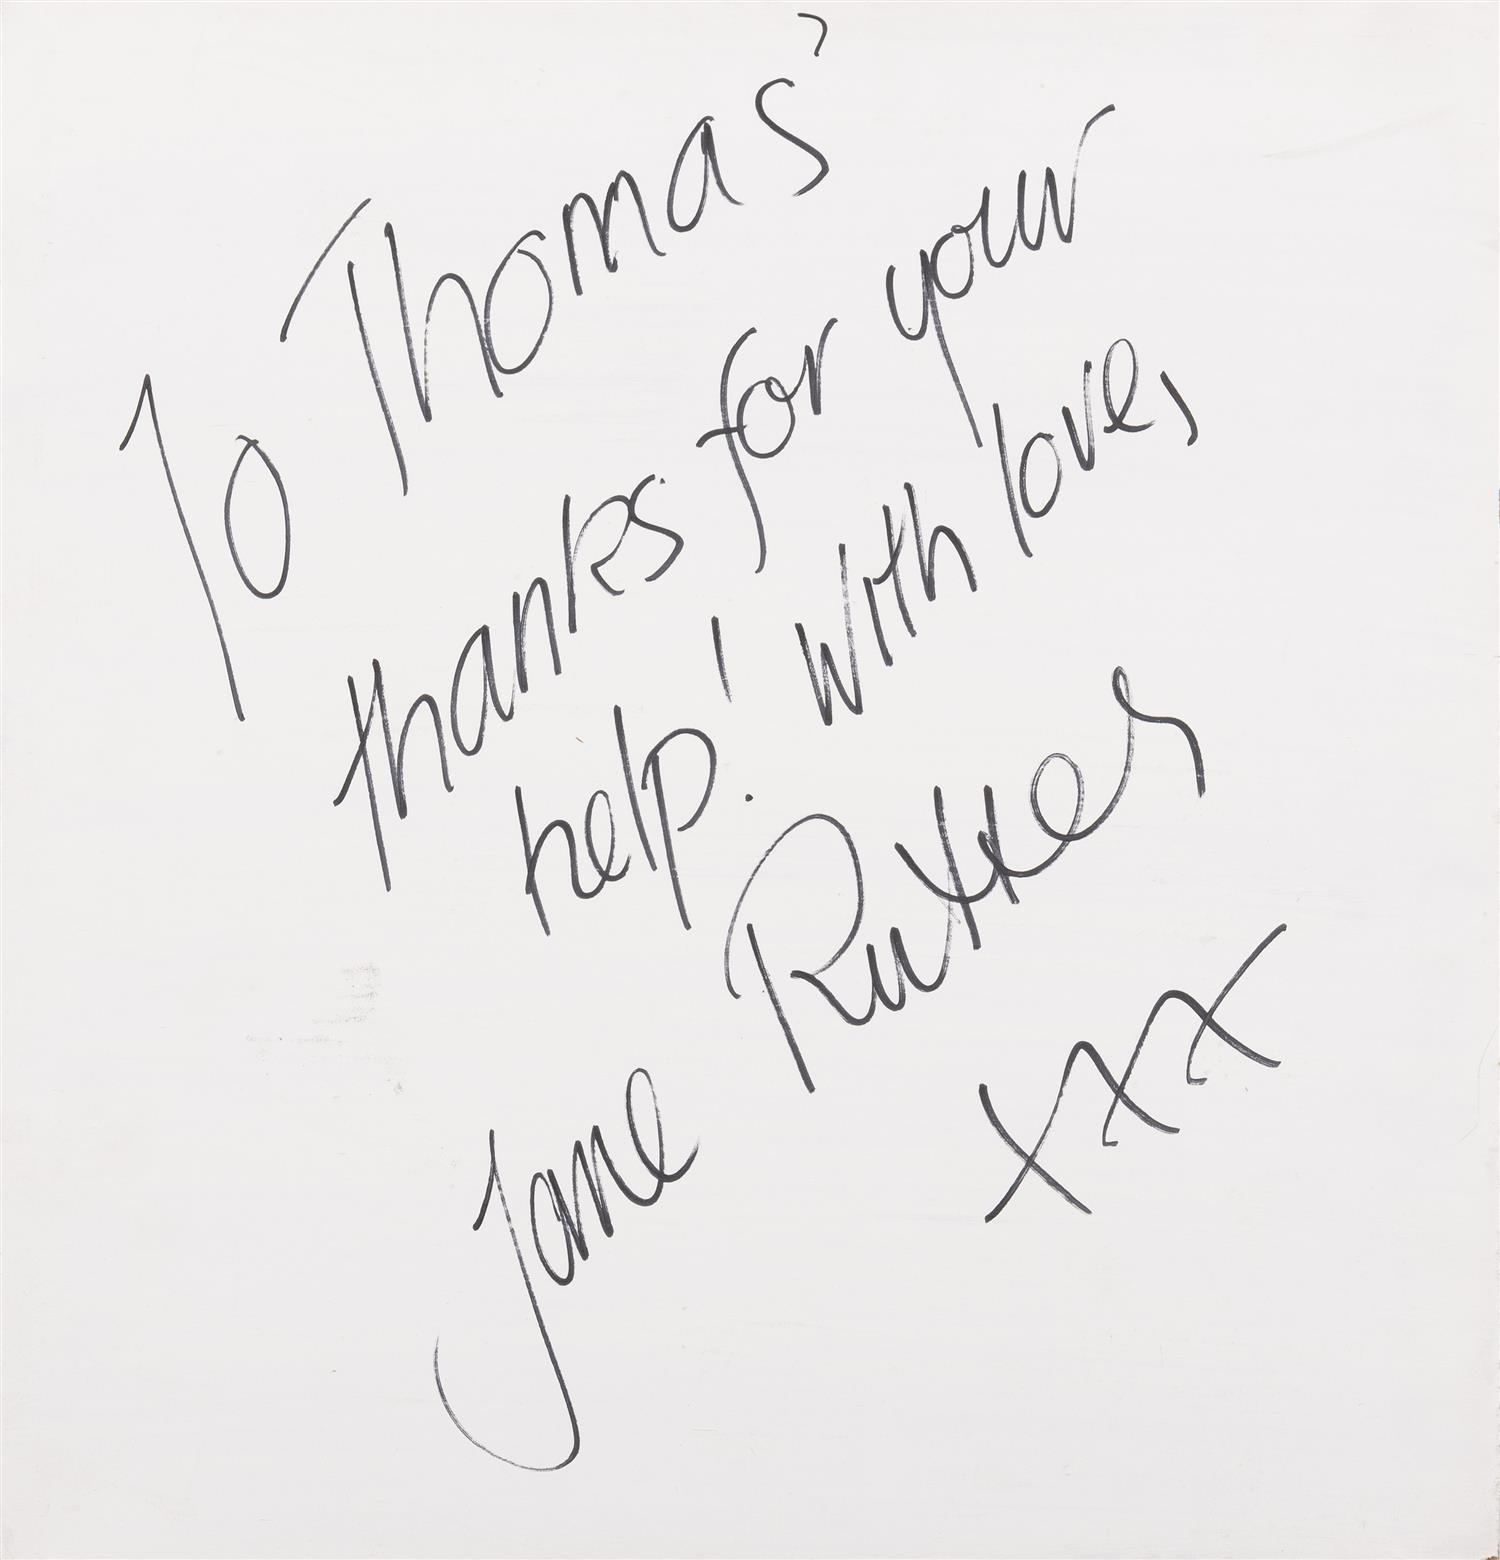 To Thomas'
thanks for your
help! With love,
Jane Rutter
xxx